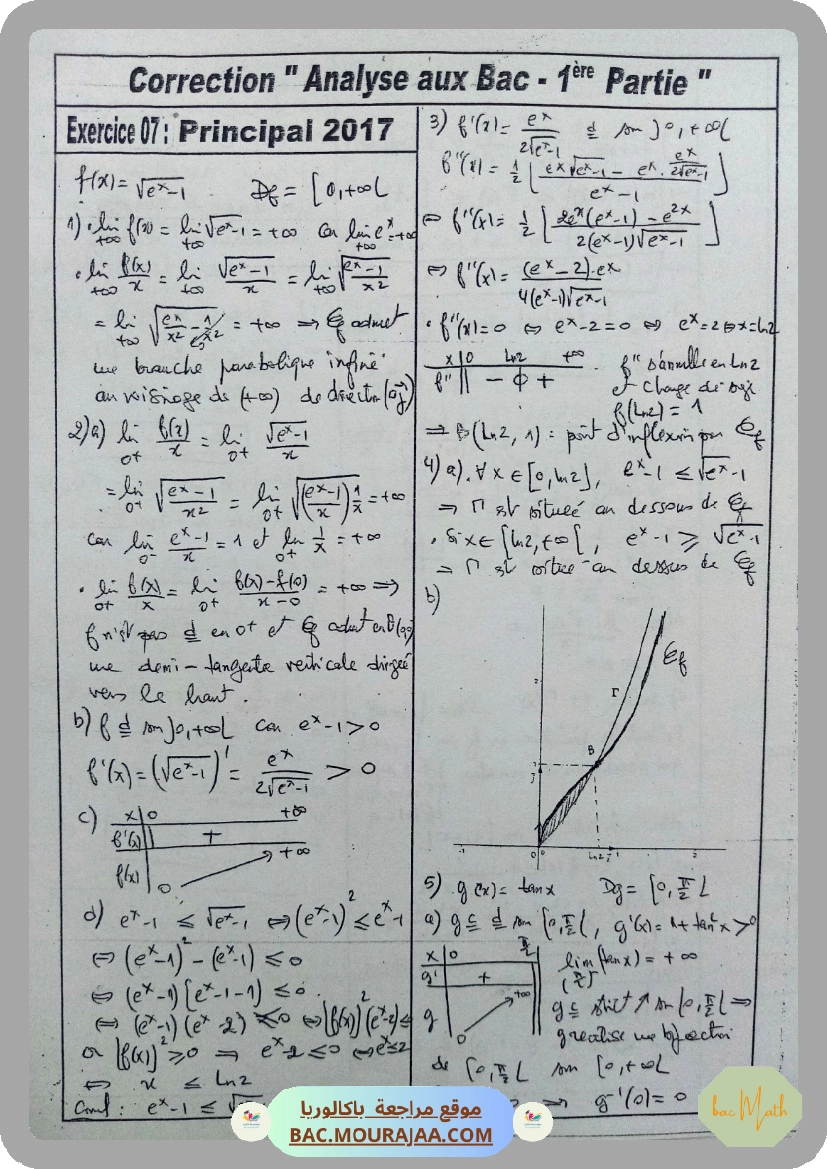 Correction " Analyse aux Bac - 1ère Partie "
Exercice 07 : Principal 2017
f(x) = √(e^x-1)   Df = [0,+∞[
1) • lim_{+∞} f(x) = lim_{+∞} √(e^x-1) = +∞ car lim e^x = +∞
• lim_{+∞} f(x)/x = lim_{+∞} √(e^x-1)/x = lim_{+∞} √((e^x-1)/x²)
= lim_{+∞} √(e^x/x² - 1/x²) = +∞ ⇒ ℭf admet
une branche parabolique infinie
au voisinage de (+∞) de direction (o,j⃗)
2) a) lim_{0+} f(x)/x = lim_{0+} √(e^x-1)/x
= lim_{0+} √((e^x-1)/x²) = lim_{0+} √(((e^x-1)/x) 1/x) = +∞
car lim_{0} (e^x-1)/x = 1 et lim_{0+} 1/x = +∞
• lim_{0+} f(x)/x = lim_{0+} (f(x)-f(0))/(x-0) = +∞ ⇒
f n'est pas d en 0+ et ℭf admet en
une demi-tangente verticale dirigée
vers le haut.
b) f d sur ]0,+∞[ car e^x-1 > 0
f'(x) = (√(e^x-1))' = e^x/(2√(e^x-1)) > 0
c) x 0 +∞
f'(x) +
f(x) 0 +∞
d) e^x-1 ≤ √(e^x-1) ⇔ (e^x-1)² ≤ e^x-1
⇔ (e^x-1)² - (e^x-1) ≤ 0
⇔ (e^x-1)[e^x-1-1] ≤ 0
⇔ (e^x-1)(e^x-2) ≤ 0 ⇔ [f(x)]²(e^x-2) ≤
or [f(x)]² ≥ 0 ⇒ e^x-2 ≤ 0 ⇔ e^x ≤ 2
⇔ x ≤ ln2
Concl : e^x-1 ≤
3) f'(x) = e^x/(2√(e^x-1)) d sur ]0,+∞[
f''(x) = 1/2 [(e^x√(e^x-1) - e^x · e^x/(2√(e^x-1)))/(e^x-1)]
⇔ f''(x) = 1/2 [(2e^x(e^x-1) - e^{2x})/(2(e^x-1)√(e^x-1))]
⇔ f''(x) = (e^x-2)·e^x/(4(e^x-1)√(e^x-1))
• f''(x) = 0 ⇔ e^x-2 = 0 ⇔ e^x = 2 ⇔ x = ln2
x 0 ln2 +∞ f'' s'annulle en ln2
f'' || - 0 + et change de signe
f(ln2) = 1
⇒ B(ln2, 1) : point d'inflexion pour ℭf
4) a) • ∀ x ∈ [0,ln2], e^x-1 ≤ √(e^x-1)
⇒ Γ est située au dessous de ℭf
• Si x ∈ [ln2,+∞[, e^x-1 ≥ √(e^x-1)
⇒ Γ est située au dessus de ℭf
b)
ℭf
Γ
2
B
1
j
-1 0 0 ln2 i 1 2
5) g(x) = tan x   Dg = [0, π/2[
a) g est d sur [0, π/2[, g'(x) = 1+tan²x > 0
x 0 π/2 lim_{(π/2)-}(tan x) = +∞
g' + g est strict ↗ sur [0, π/2[ ⇒
g 0 +∞ g réalise une bijection
de [0, π/2[ sur [0,+∞[
⇒ g⁻¹(0) = 0
موقع مراجعة باكالوريا
BAC.MOURAJAA.COM
bac Math